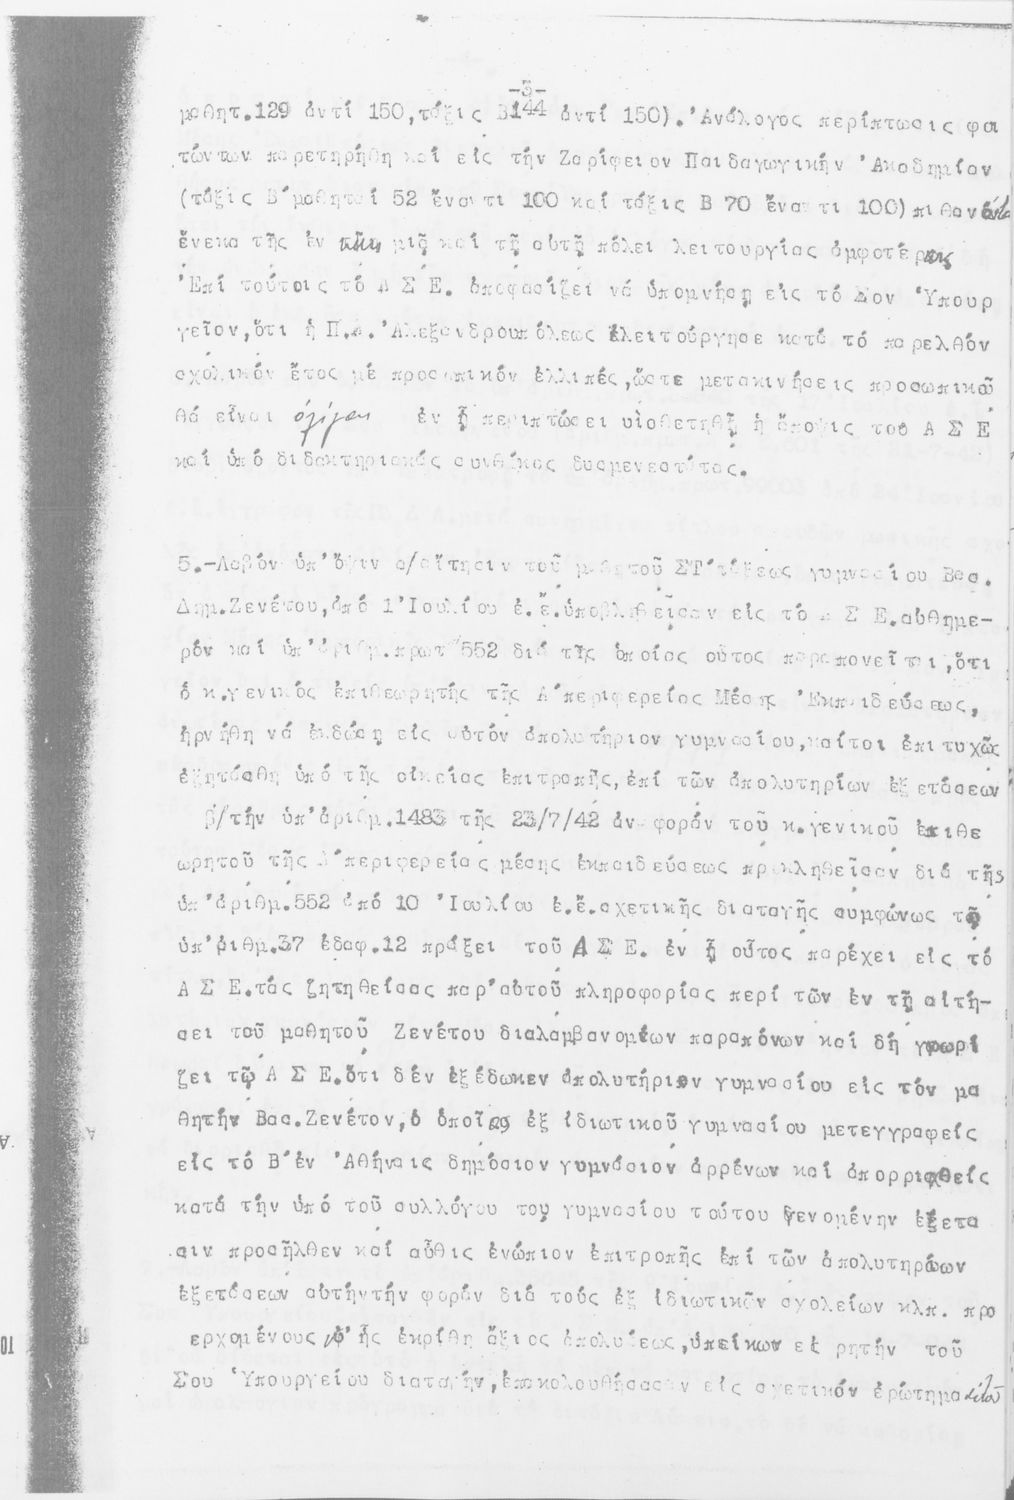 -3-
μαθητ.129 ἀντί 150,τάξις Β144 ἀντί 150).Ἀνάλογος περίπτωσις φοι
τώντων παρετηρήθη καί εἰς τήν Ζαρίφειον Παιδαγωγικήν Ἀκαδημίαν
(τάξις Β΄μαθηταί 52 ἔναντι 100 καί τάξις Β 70 ἔναντι 100)
ἕνεκα τῆς ἐν μιᾷ καί τῇ αὐτῇ πόλει λειτουργίας ἀμφοτέρων
Ἐπί τούτοις τό Α Σ Ε. ἀποφασίζει νά ὑπομνήσῃ εἰς τό Σον Ὑπουρ
γεῖον,ὅτι ἡ Π.Α.Ἀλεξανδρουπόλεως ἐλειτούργησε κατά τό παρελθόν
σχολικόν ἔτος μέ προσωπικόν ἐλλιπές,ὥστε μετακινήσεις προσωπικοῦ
θά εἶναι ὀλίγαι ἐν ᾗ περιπτώσει υἱοθετηθῇ ἡ ἄποψις του Α Σ Ε
καί ὑπό διδακτηριακάς συνθήκας δυσμενεστάτας.
5.-Λαβόν ὑπ'ὄψιν α/αἴτησιν τοῦ μαθητοῦ ΣΤ΄τάξεως γυμνασίου Βασ.
Δημ.Ζενέτου,ἀπό 1 Ἰουλίου ἐ.ἔ.ὑποβληθεῖσαν εἰς τό Α Σ Ε.αὐθημε-
ρόν καί ὑπ'ἀριθμ.πρωτ 552 διά τῆς ὁποίας οὗτος παραπονεῖται,ὅτι
ὁ κ.γενικός ἐπιθεωρητής τῆς Α΄περιφερείας Μέσης Ἐκπαιδεύσεως,
ἠρνήθη νά ἐκδώσῃ εἰς αὐτόν ἀπολυτήριον γυμνασίου,καίτοι ἐπιτυχῶς
ἐξητάσθη ὑπό τῆς οἰκείας ἐπιτροπῆς,ἐπί τῶν ἀπολυτηρίων ἐξετάσεων
β/τήν ὑπ'ἀριθμ.1483 τῆς 23/7/42 ἀναφοράν τοῦ κ.γενικοῦ ἐπιθε
ωρητοῦ τῆς Α΄περιφερείας μέσης ἐκπαιδεύσεως προκληθεῖσαν διά τῆς
ὑπ'ἀριθμ.552 ἀπό 10 Ἰουλίου ἐ.ἔ.σχετικῆς διαταγῆς συμφώνως τῷ
ὑπ'ριθμ.37 ἐδαφ.12 πράξει τοῦ Α Σ Ε. ἐν ᾗ οὗτος παρέχει εἰς τό
Α Σ Ε.τάς ζητηθείσας παρ'αὐτοῦ πληροφορίας περί τῶν ἐν τῇ αἰτή-
σει τοῦ μαθητοῦ Ζενέτου διαλαμβανομέων παραπόνων καί δή γνωρί
ζει τῷ Α Σ Ε.ὅτι δέν ἐξέδωκεν ἀπολυτήριον γυμνασίου εἰς τόν μα
θητήν Βασ.Ζενέτον,ὁ ὁποῖος ἐξ ἰδιωτικοῦ γυμνασίου μετεγγραφείς
εἰς τό Β΄ἐν Ἀθήναις δημόσιον γυμνάσιον ἀρρένων καί ἀπορριφθείς
κατά τήν ὑπό τοῦ συλλόγου του γυμνασίου τούτου γενομένην ἐξετα
σιν προσῆλθεν καί αὖθις ἐνώπιον ἐπιτροπῆς ἐπί τῶν ἀπολυτηρίων
ἐξετάσεων αὐτήντήν φοράν διά τούς ἐξ ἰδιωτικῶν σχολείων κλπ. προ
ερχομένους ὑφ' ἧς ἐκρίθη ἄξιος ἀπολύσεως,ὑπείκων εἰ ρητήν τοῦ
Σου Ὑπουργείου διαταγήν,ἐπακολουθήσασαν εἰς σχετικόν ἐρώτημα